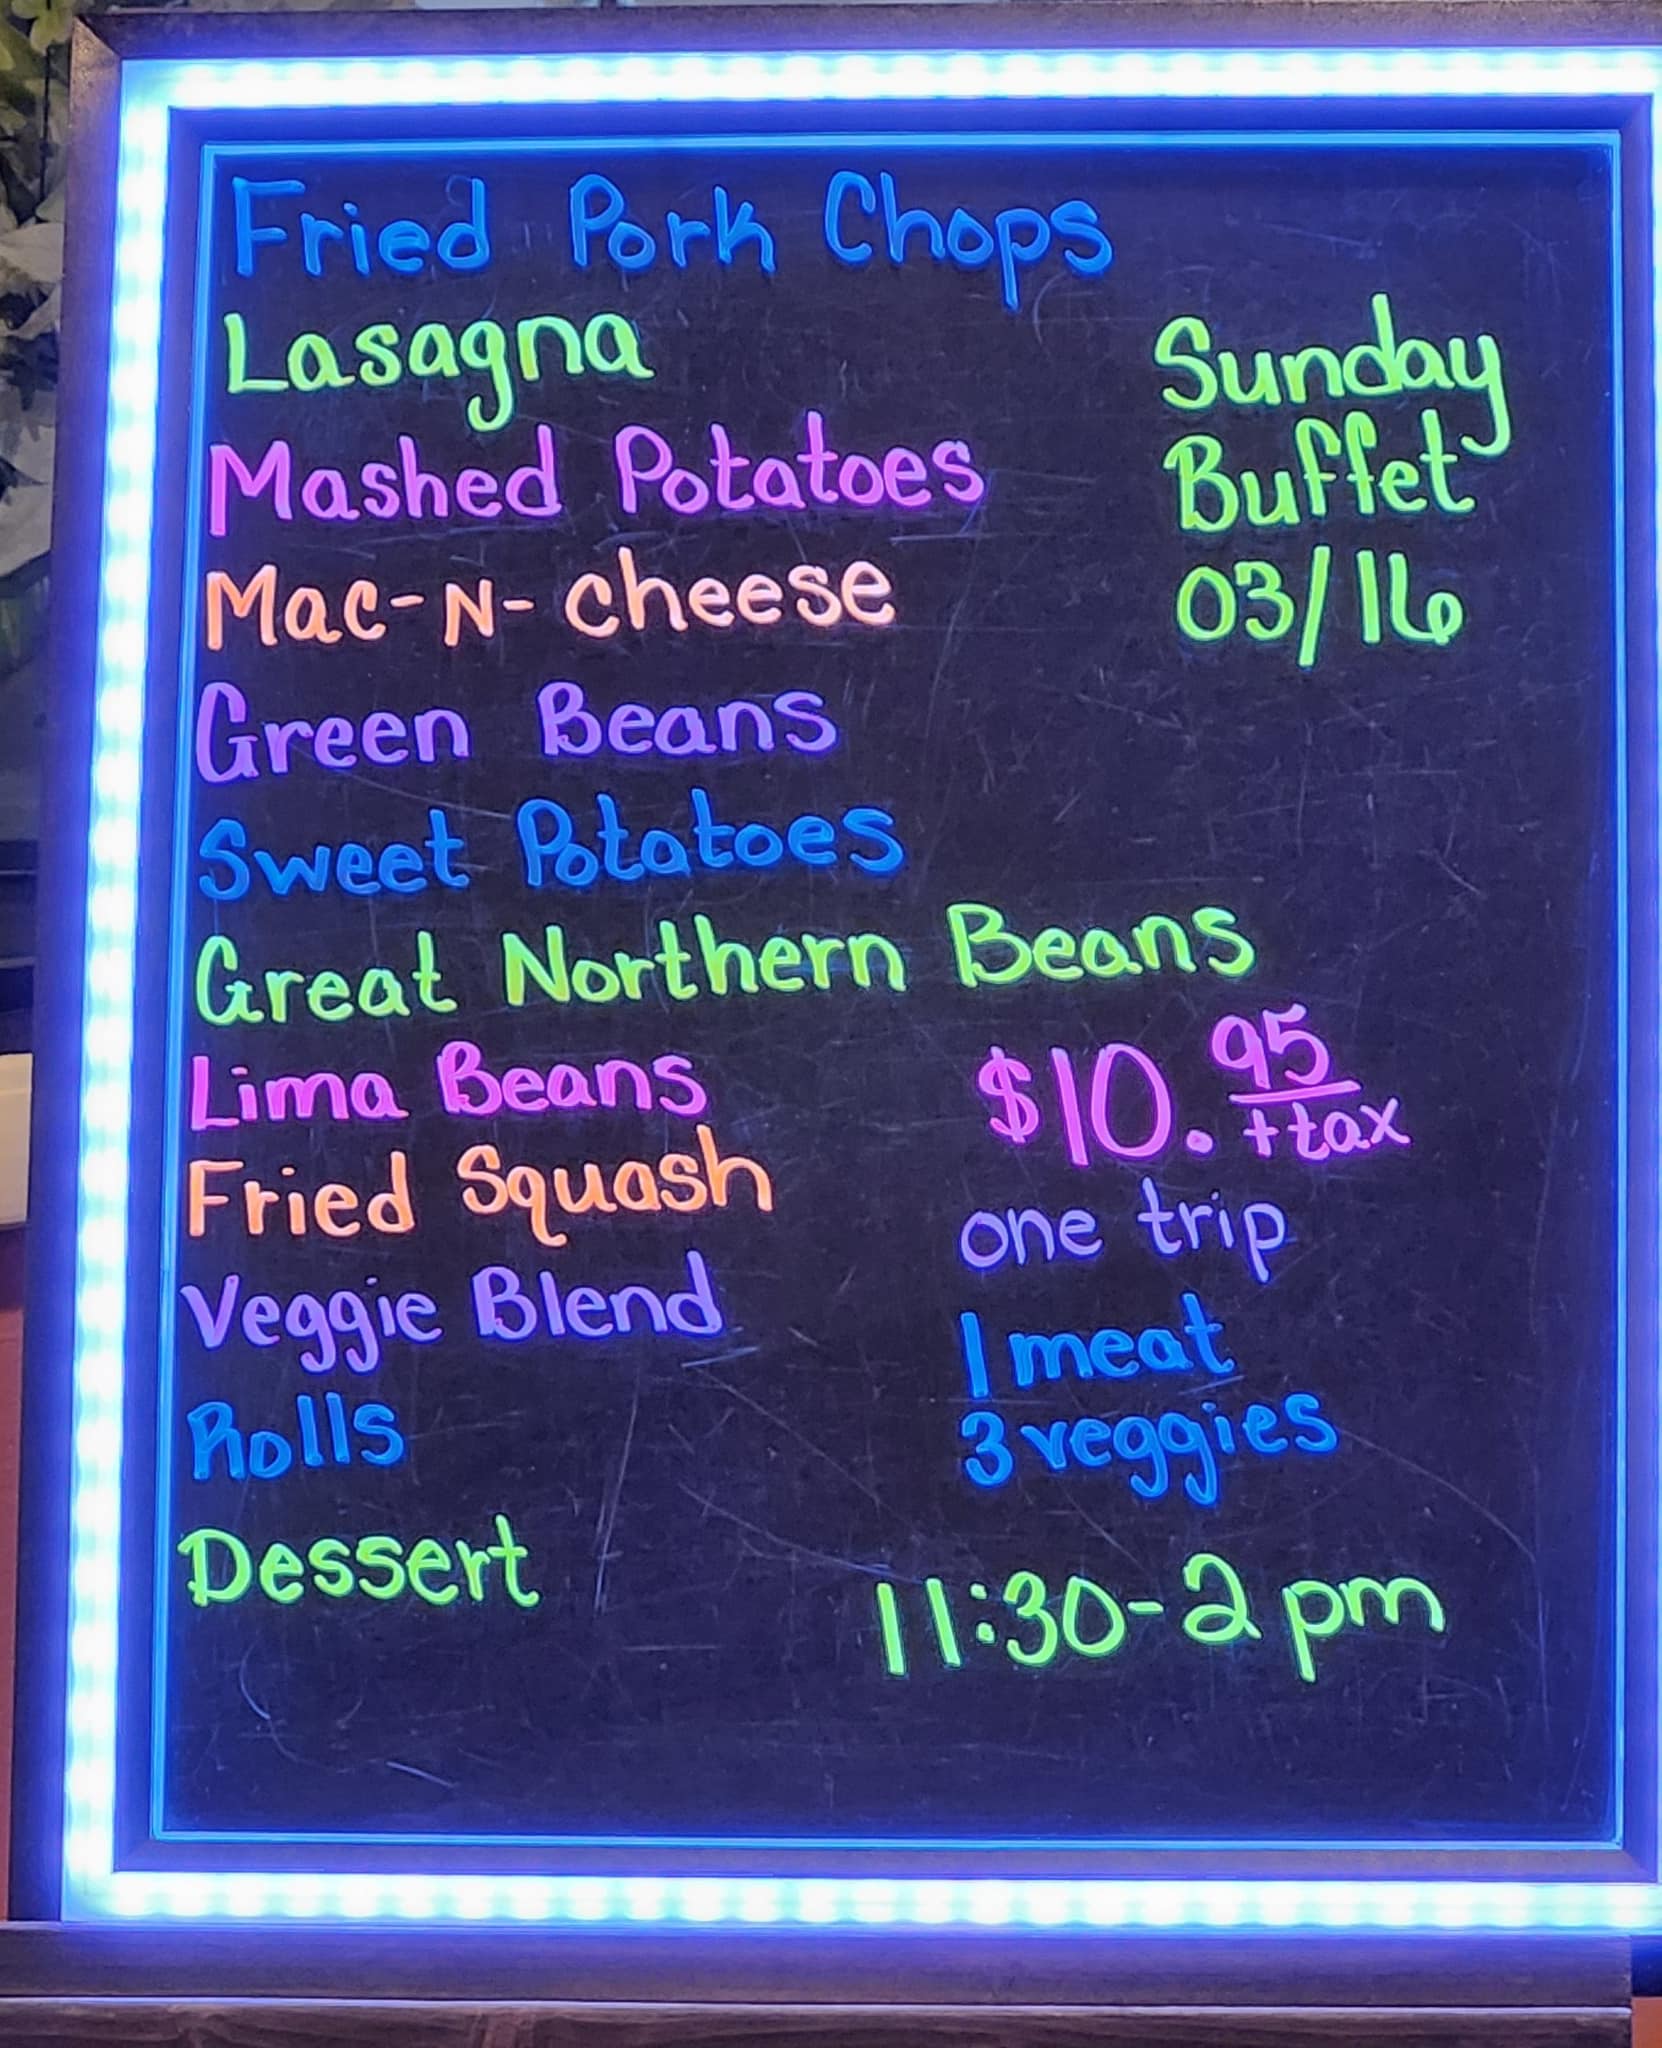 Fried Pork Chops
Lasagna
Mashed Potatoes
Mac-N-Cheese
Green Beans
Sweet Potatoes
Great Northern Beans
Lima Beans
Fried Squash
Veggie Blend
Rolls
Dessert
Sunday
Buffet
03/16
$10.95
+tax
one trip
1 meat
3 veggies
11:30-2pm